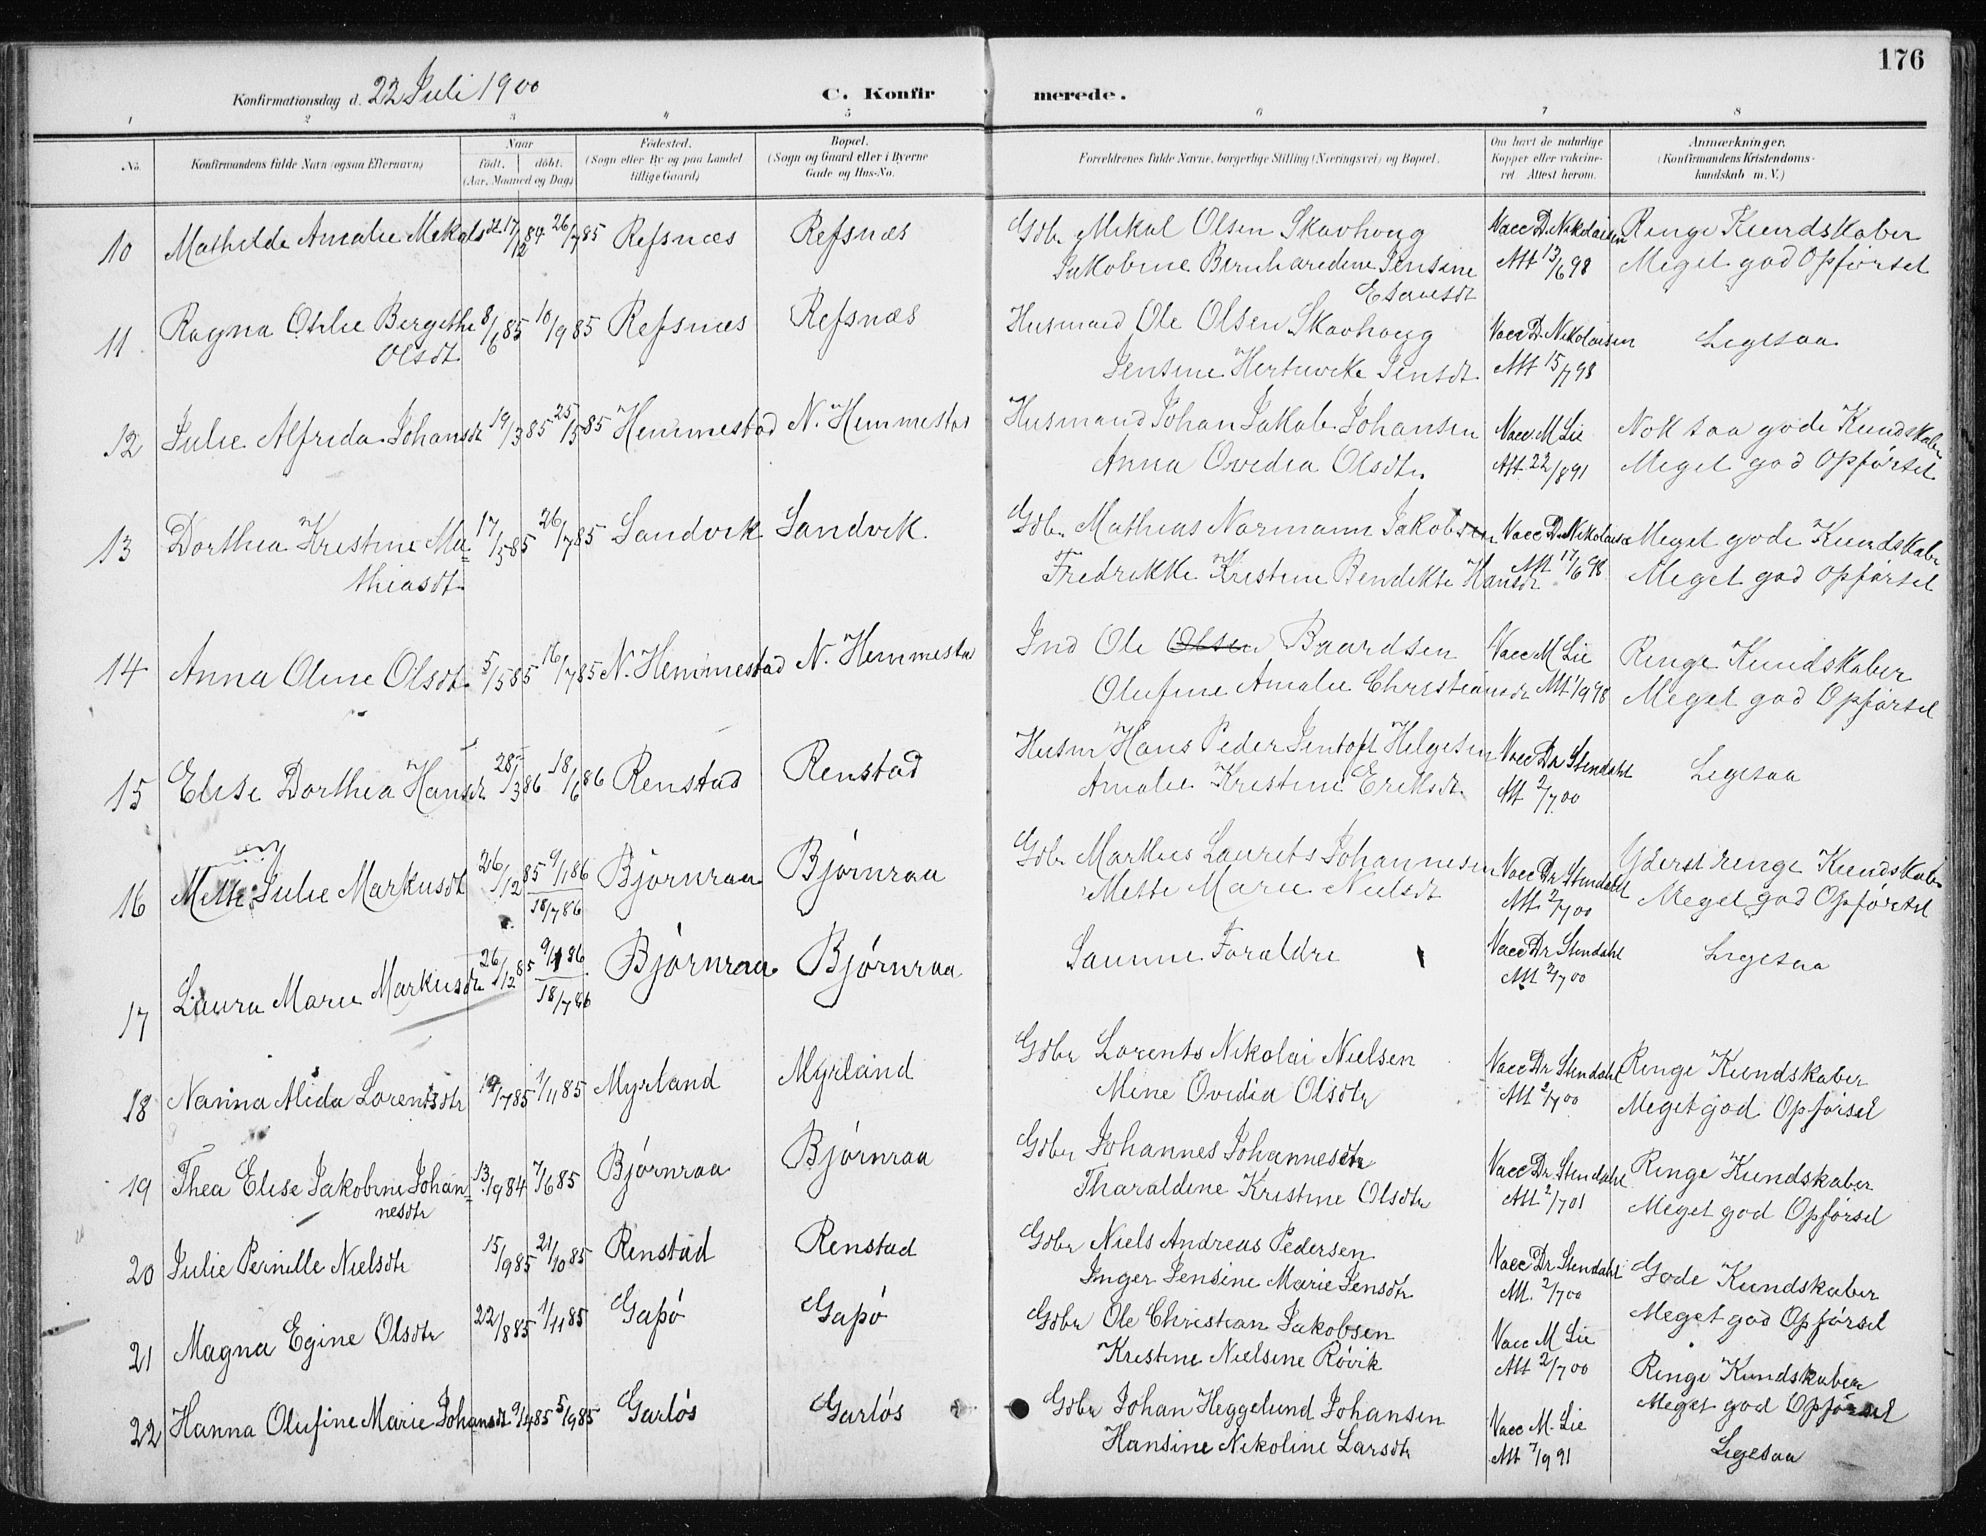 176
Konfirmationsdag d. 22 Juli 1900
C. Konfirmerede.
1 2 3 4 5 6 7 8
No.
Konfirmandens fulde Navn (ogsaa Efternavn)
Naar
födt. döbt.
(Aar, Maaned og Dag)
Födested.
(Sogn eller By og paa Landet
tillige Gaard)
Bopæl.
(Sogn og Gaard eller i Byerne
Gade og Hus-No.
Forældrenes fulde Navne, borgerlige Stilling (Næringsvei) og Bopæl.
Om havt de naturlige
Kopper eller vakcine-
ret Attest herom.
Anmærkninger.
(Konfirmandens Kristendoms-
kundskab m. V.)
10 Mathilde Amalie Mekalsdt 17/12 84 26/7 85 Refsnæs Refsnæs Gdbr Mekal Olsen Skavhoug Vacc D. Nikolaisen Ringe Kundskaber
Jakobine Bernhardine Jensine Att 13/6 98 Meget god Opførsel
Esaiasdt
11 Ragna Othlie Bergethe 8/6 85 10/9 85 Refsnæs Refsnæs Husmand Ole Olsen Skavhoug Vacc Dr. Nikolaisen Ligesaa
Olsdt. Jensine Hertwicke Jensdt. Att 15/7 98
12 Julie Alfrida Johansdt 19/3 85 25/5 85 Hemmestad N. Hemmestad Husmand Johan Jakob Johansen Vacc M Lie Nok saa gode Kundskaber
Anna Ovedia Olsdtr. Att. 22/8 91 Meget god Opførsel
13 Dorthea Kristine Ma= 17/5 85 26/7 85 Sandvik Sandvik. Gdbr Mathias Normann Jakobsen Vacc D. Nikolaisen Meget gode Kundskaber
thiasdt. Fredrikke Kristine Bendikte Hansdt Att 17/6 98 Meget god Opførsel
14 Anna Oline Olsdt. 5/5 85 16/7 85 N. Hemmestad N. Hemmestad Ind Ole Olsen Baardsen Vacc M Lie Ringe Kundskaber
Olufine Amalie Christiansdt Att 1/9 98 Meget god Opførsel
15 Elise Dorthea Hansdt 28/3 86 18/6 86 Renstad Renstad Husm Hans Peder Jentoft Helgesen Vacc Dr Stendahl Ligesaa
Amalie Kristine Eriksdt. Att 2/7 00
16 Mette Julie Markusdt 26/12 85 9/1 86 Bjørnraa Bjørnraa Gdbr Markus Laurits Johannesen Vacc Dr Stendahl Yderst ringe Kundskaber
18/7 86 Mette Marie Nielsdt Att. 2/7 00 Meget god Opførsel
17 Laura Marie Markusdtr 26/12 85 9/1 86 Bjørnraa Bjørnraa Samme Foraldre Vacc Dr Stendahl Ligesaa
18/7 86 Att 2/7 00
18 Nanna Alida Lorentsdtr 19/7 85 1/11 85 Myrland Myrland Gdbr Lorents Nikolai Nielsen Vacc Dr Stendahl Ringe Kundskaber
Mine Ovidia Olsdtr Att 2/7 00 Meget god Opførsel
19 Thea Elise Jakobine Johan= 13/9 84 7/6 85 Bjørnraa Bjørnraa Gdbr Johannes Johannesen Vacc Dr Stendahl Ringe Kundskaber
nesdtr Tharaldine Kristine Olsdtr Att 2/7 01 Meget god Opførsel
20 Julie Pernille Nielsdtr 15/9 85 21/10 85 Renstad Renstad Gdbr Niels Andreas Pedersen Vacc Dr Stendahl Gode Kundskaber
Inger Jensine Marie Jensdtr Att. 2/7 00 Meget god Opførsel
21 Magna Egine Olsdtr 22/8 85 1/11 85 Gapø Gapø Gdbr Ole Christian Jakobsen Vacc M Lie Ringe Kundskaber
Kristine Nielsine Røvik Att 2/7 00 Meget god Opførsel
22 Hanna Olufine Marie Johansdt. 9/4 85 5/9 85 Garløs Garløs Gdbr Johan Heggelund Johansen Vacc M. Lie Ligesaa
Hansine Nikoline Larsdtr Att 7/9 91